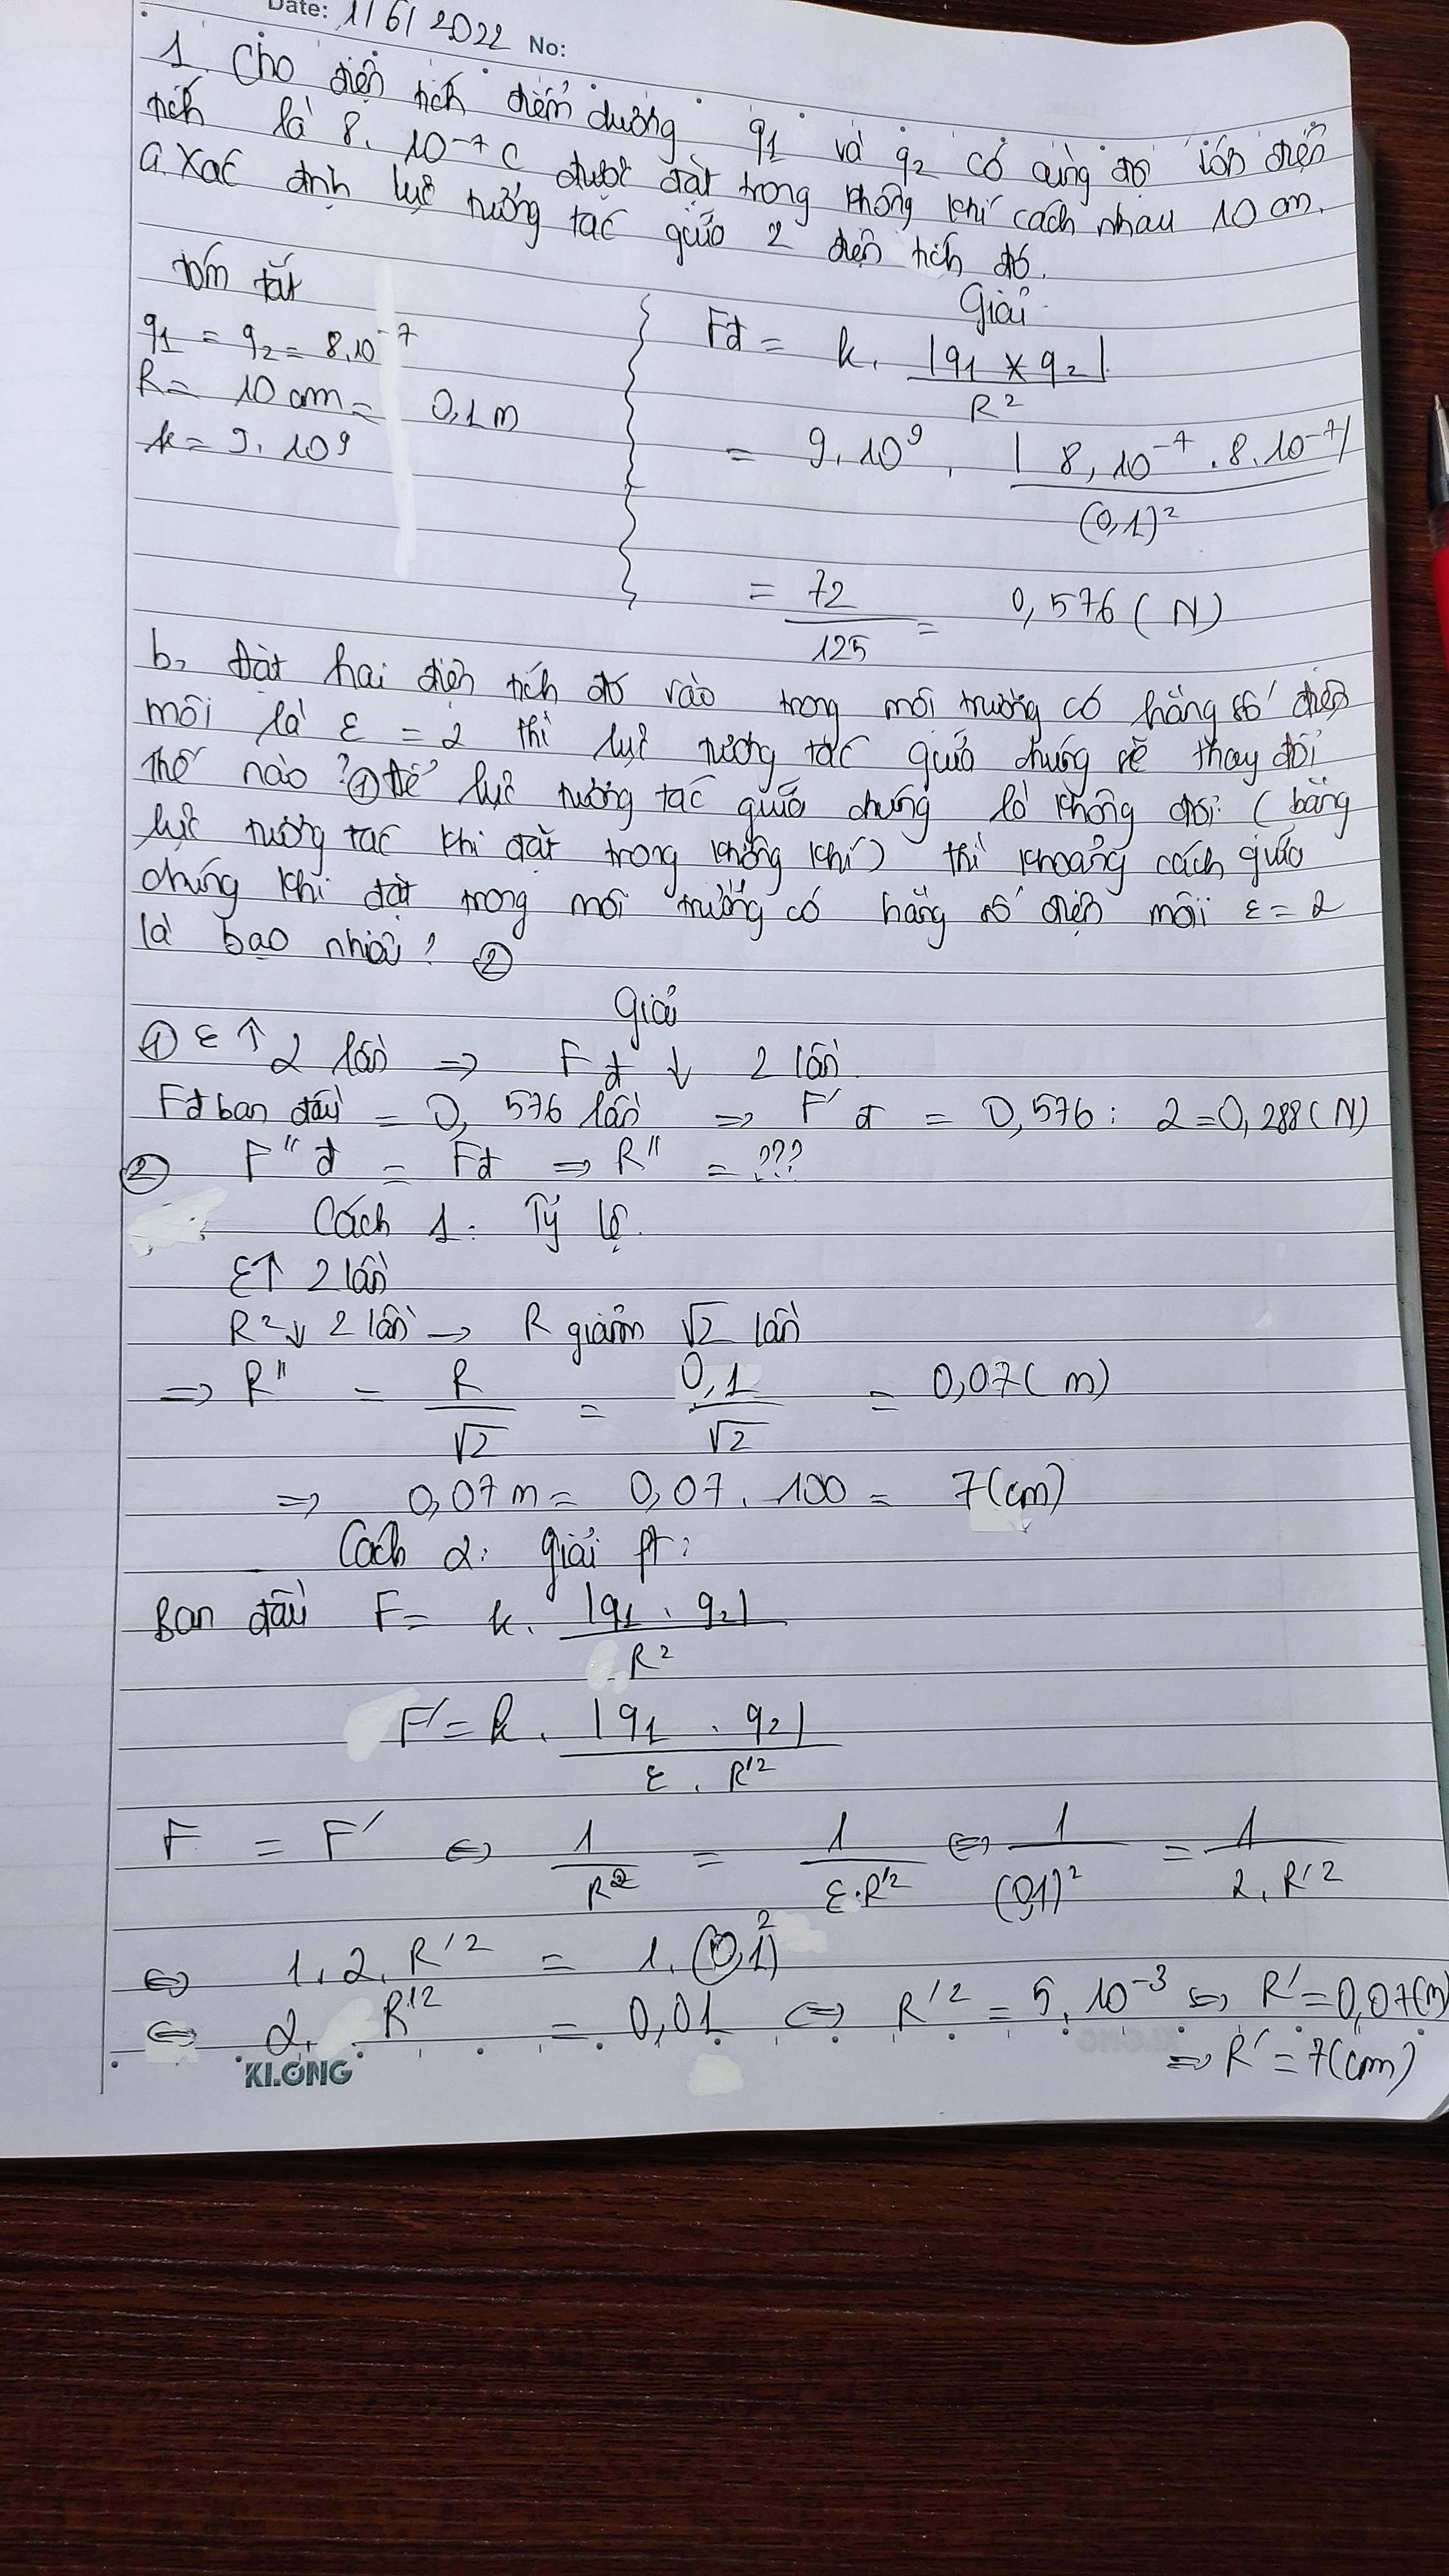 Date: 1/6/2022 No:
1. Cho điện tích điểm dương q1 và q2 có cùng độ lớn điện
tích là 8.10⁻⁷ C được đặt trong không khí cách nhau 10 cm.
a. Xác định lực tương tác giữa 2 điện tích đó.
Tóm tắt
q1 = q2 = 8.10⁻⁷
R = 10 cm = 0,1 m
k = 9.10⁹
Giải
Fđ = k. |q1 × q2| / R²
= 9.10⁹. |8.10⁻⁷.8.10⁻⁷| / (0,1)²
= 72/125 = 0,576 (N)
b, Đặt hai điện tích đó vào trong môi trường có hằng số điện
môi là ε = 2 thì lực tương tác giữa chúng sẽ thay đổi
thế nào? ① Để lực tương tác giữa chúng là không đổi (bằng
lực tương tác khi đặt trong không khí) thì khoảng cách giữa
chúng khi đặt trong môi trường có hằng số điện môi ε = 2
là bao nhiêu? ②
Giải
① ε ↑ 2 lần => Fđ ↓ 2 lần.
Fđ ban đầu = 0,576 lần => F'đ = 0,576 : 2 = 0,288 (N)
② F''đ = Fđ => R'' = ???
Cách 1: Tỷ lệ.
ε↑ 2 lần
R²↓ 2 lần → R giảm √2 lần
=> R'' = R/√2 = 0,1/√2 = 0,07 (m)
=> 0,07 m = 0,07 . 100 = 7 (cm)
Cách 2: giải pt:
Ban đầu F = k. |q1 . q2| / R²
F' = k. |q1 . q2| / ε . R'²
F = F' <=> 1/R² = 1/ε.R'² <=> 1/(0,1)² = 1/2.R'²
<=> 1.2.R'² = 1.(0,1)²
<=> 2. R'² = 0,01 <=> R'² = 5.10⁻³ <=> R' = 0,07 (m)
=> R' = 7 (cm)
KLONG